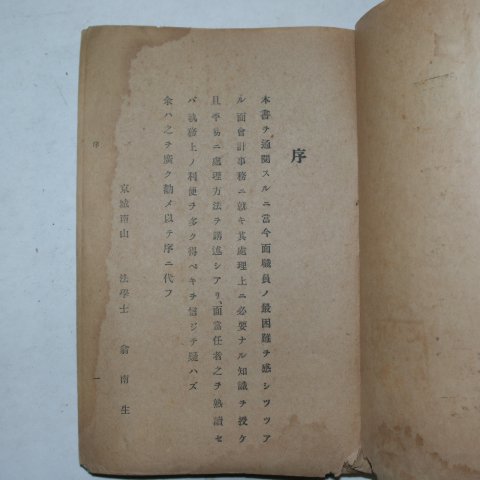 序
本書ヲ通閲スルニ當今面職員ノ最困難ヲ感シツツア
ル面會計事務ニ就キ其處理上ニ必要ナル知識ヲ授ケ
且平易ニ處理方法ヲ講述シアリ、面當任者之ヲ熟讀セ
バ執務上ノ利便ヲ多ク得ベキヲ信ジテ疑ハズ
余ハ之ヲ廣ク勸メ以テ序ニ代フ
京城南山 法學士 翁南生
序
一